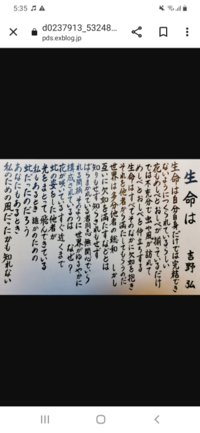 5:35
d0237913_53248...
pds.exblog.jp
生命は
吉野 弘
生命は自分自身だけでは完結でき
ないようにつくられているらしい
花もめしべとおしべが揃っているだけ
では不充分で虫や風が訪れて
めしべとおしべを仲立ちする
生命はすべてそのなかに欠如を抱き
それを他者から満たしてもらうのだ
世界は多分他者の総和 しかし
互いに欠如を満たすなどとは
知りもせず知らされもせず
ばらまかれている者同士 無関心でいら
れる間柄 そのように世界がゆるやかに
構成されているのは なぜ?
花が咲いているすぐ近くまで
虻の姿をした他者が
光をまとって飛んできている
私もあるとき誰かのための
虻だったのだろう
あなたもあるとき
私のための風だったかも知れない